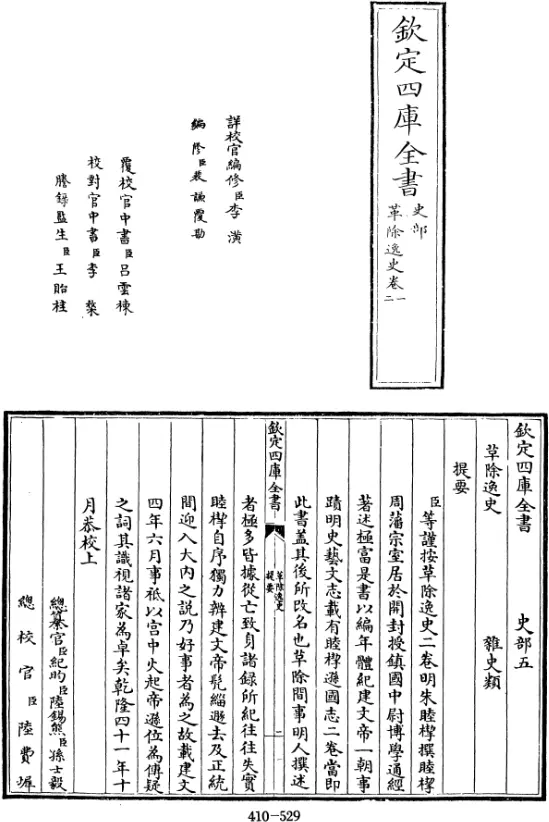 欽定四庫全書
史部
革除逸史卷一
二
詳校官編修臣李潢
編修臣裴謙覆勘
覆校官中書臣呂雲棟
校對官中書臣李
謄錄監生臣王貽桂
欽定四庫全書
史部五
革除逸史
雜史類
提要
臣等謹按革除逸史二卷明朱睦㮮撰睦㮮
周藩宗室居於開封授鎮國中尉博學通經
著述極富是書以編年體紀建文帝一朝事
蹟明史藝文志載有睦㮮遜國志二卷當即
此書蓋其後所改名也革除間事明人撰述
欽定四庫全書
革除逸史
提要
者極多皆據從亡致身諸錄所紀往往失實
睦㮮自序獨力辨建文帝髠緇遯去及正統
間迎入大内之說乃好事者為之故載建文
四年六月事祗以宫中火起帝遜位為傳疑
之詞其識視諸家為卓矣乾隆四十一年十
月恭校上
總纂官臣紀昀臣陸錫熊臣孫士毅
總校官臣陸費墀
410-529